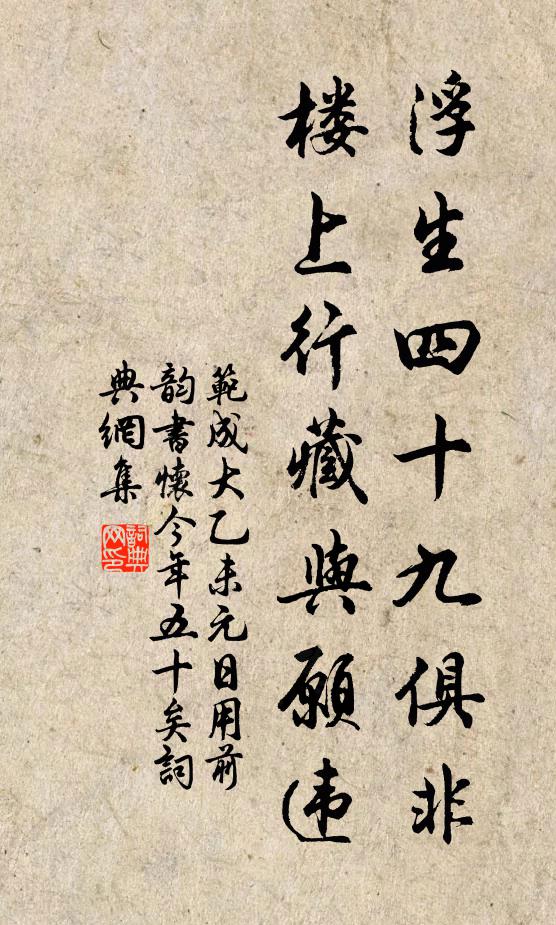 浮生四十九俱非
楼上行藏與願违
範成大乙未元日用前
韵書懷今年五十矣詞
典網集
詞典
网印